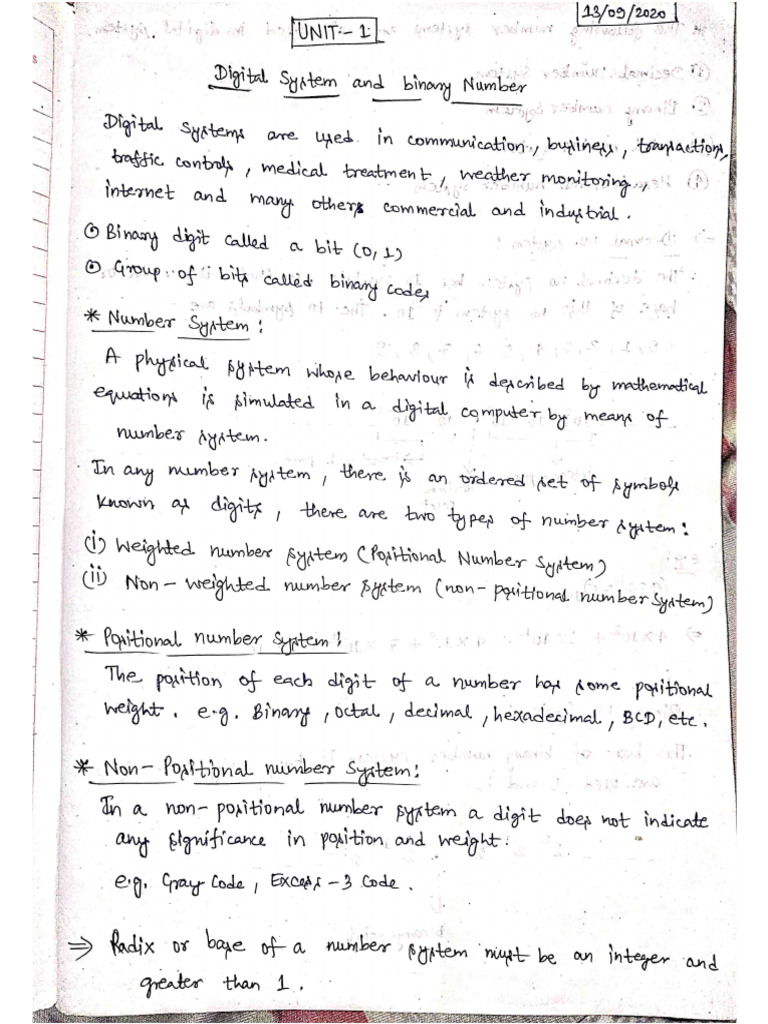 13/09/2020
UNIT:- 1
Digital System and binary Number
Digital Systems are used in communication, business, transactions,
traffic controls, medical treatment, weather monitoring,
internet and many others commercial and industrial.
⊙ Binary digit called a bit (0,1)
⊙ Group of bits called binary codes
* Number System:
A physical system whose behaviour is described by mathematical
equations is simulated in a digital computer by means of
number system.
In any number system, there is an ordered set of symbols
known as digits, there are two types of number system:
(i) Weighted number system (Positional Number System)
(ii) Non-weighted number system (non-positional number system)
* Positional number System:
The position of each digit of a number has some positional
weight. e.g. Binary, Octal, decimal, hexadecimal, BCD, etc.
* Non-Positional number System:
In a non-positional number system a digit does not indicate
any significance in position and weight.
e.g. Gray Code, Excess-3 Code.
⇒ Radix or base of a number system must be an integer and
greater than 1.